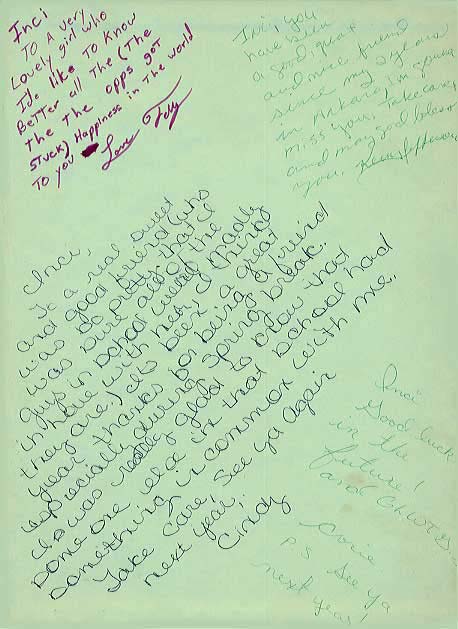 Inci
To A very
Lovely girl who
I'de like To Know
Better all The (The
the the opps got
stuck) Happiness in The world
To you Love Telly
Inci, you
have been
a good, great
and nice friend
since my 2 years
in Ankara, I'm gonna
miss you. Take care
and may god bless
you.
Inci,
To a real sweet
and good friend (who
was so pretty that I
was sure all of the
guys in school were madly
in love with her, I think
they are) it's been a great
year thanks for being a friend
especially during Spring break.
It was really glad to know that
some one else in that school had
something in common with me..
Take care, See ya again
next year!
Cindy
Inci
Good luck
in the
future!
and
Corie
P.S. See ya
next year!